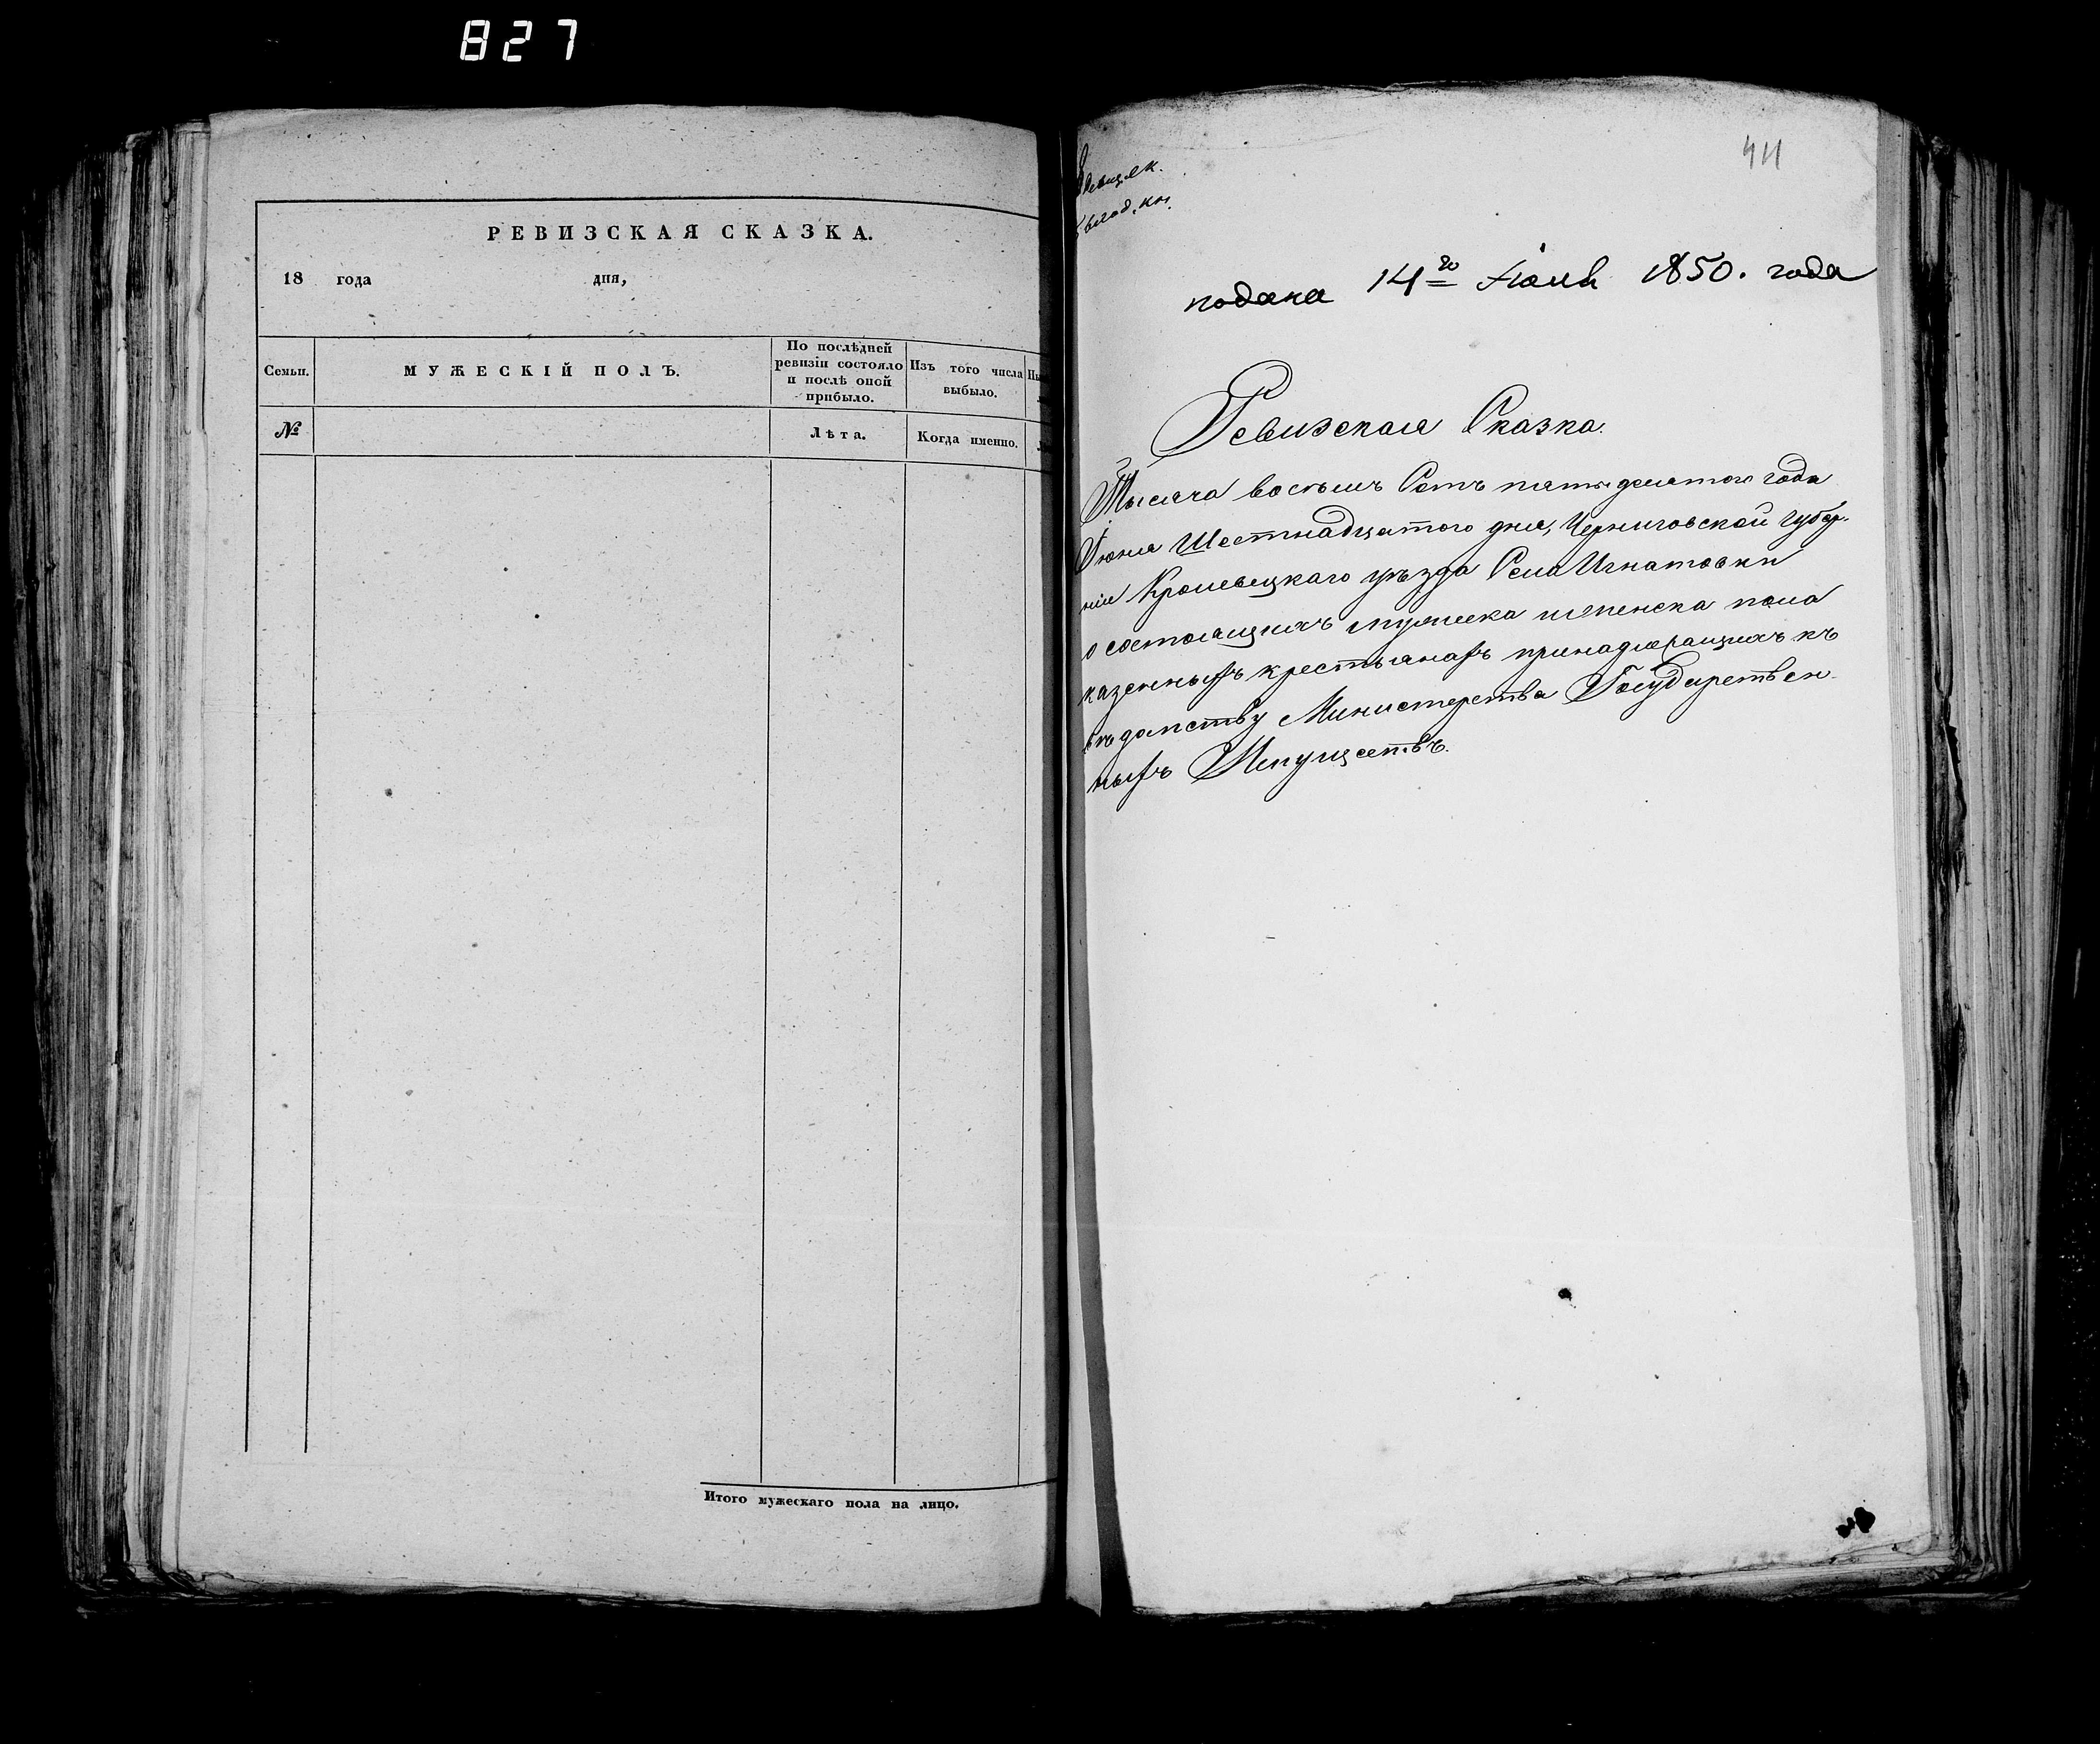 827
РЕВИЗСКАЯ СКАЗКА.
18 года дня,
Семьи. МУЖЕСКІЙ ПОЛЪ. По послѣдней ревизіи состояло и послѣ оной прибыло. Изъ того числа выбыло.
№ Лѣта. Когда именно.
Итого мужескаго пола на лицо.
подана 14го Іюля 1850. года
Ревизская Сказка.
Тысяча восемь Сотъ пятьдесятого года
Іюня Шестнадцатого дня, Черниговской губер-
ніи Кролевецкаго уѣзда Села Игнатовки
о состоящихъ мужеска и женска пола
казенныхъ крестьянахъ принадлежащихъ къ
вѣдомству Министерства Государствен-
ныхъ Имуществъ.